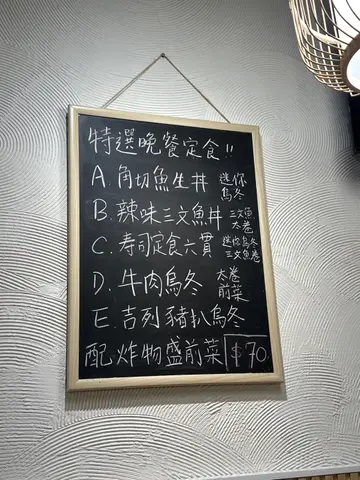 特選晚餐定食!!
A. 角切魚生丼 迷你烏冬
B. 辣味三文魚丼 三文魚太卷
C. 寿司定食六貫 迷你烏冬 三文魚卷
D. 牛肉烏冬 太卷 前菜
E. 吉列豬扒烏冬
配炸物盛前菜 $70